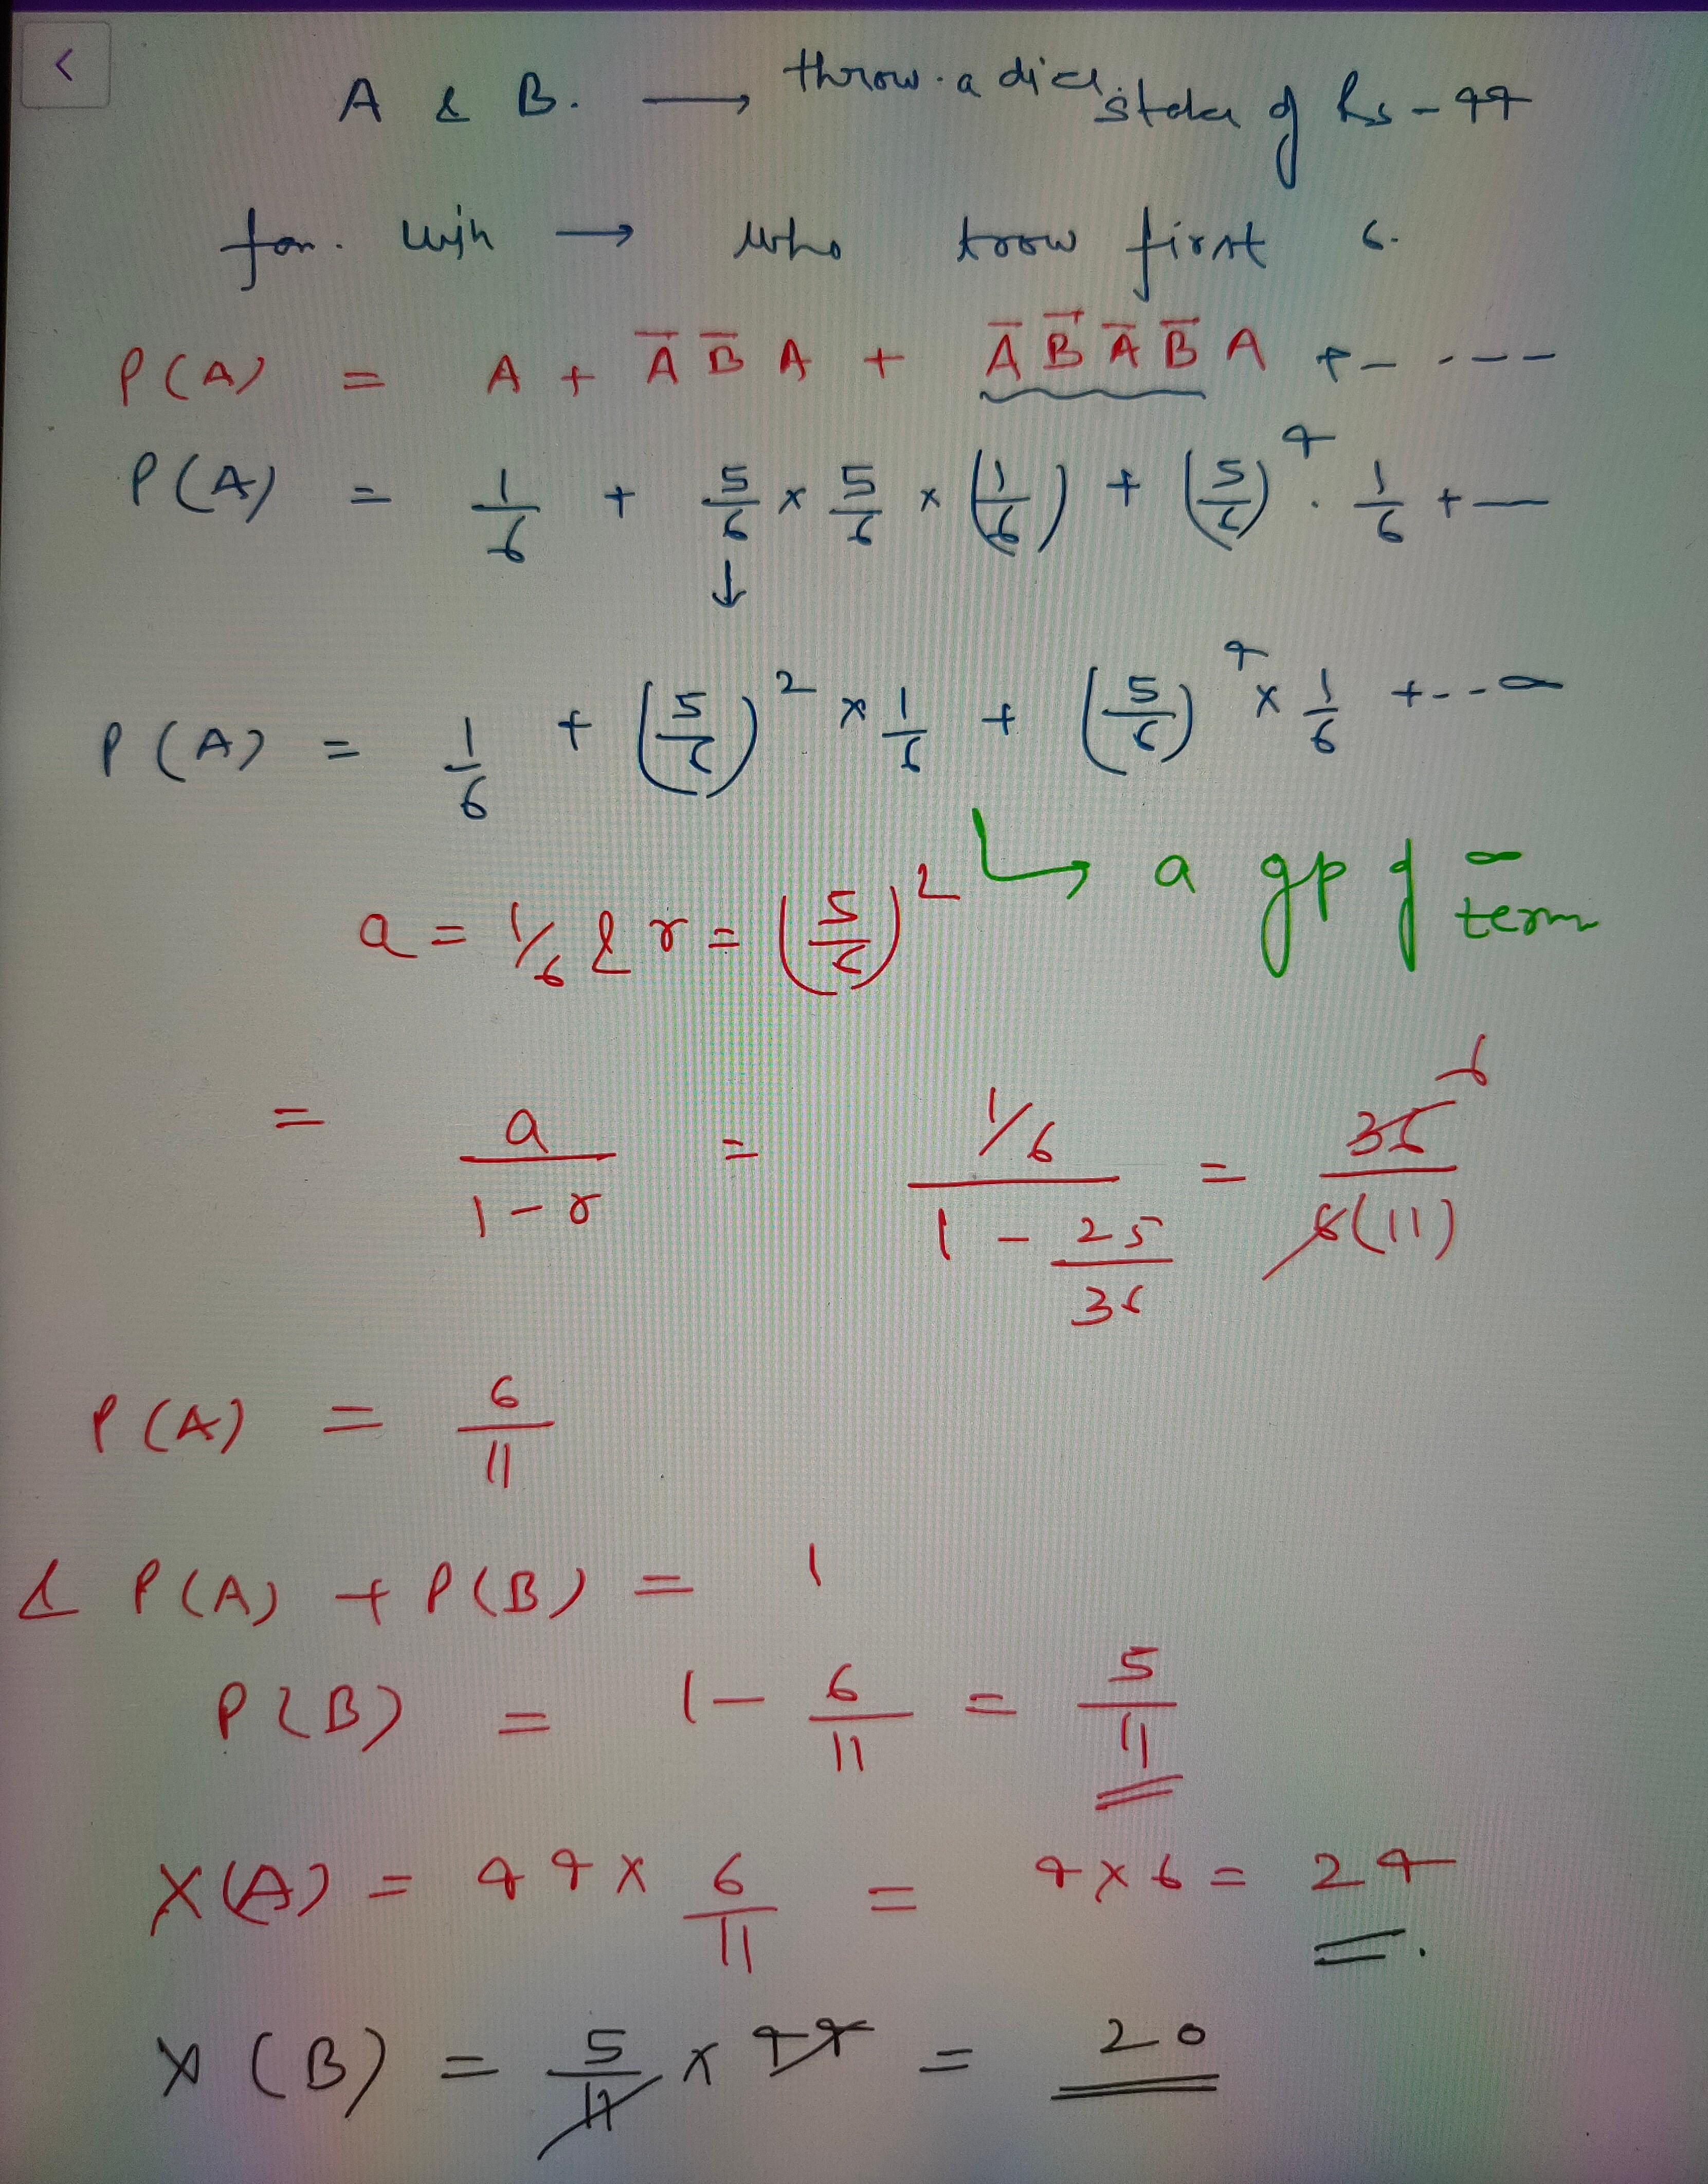 A & B. → throw a dice stake of Rs - 44
for. win → who trow first 6.
P(A) = A + A̅ B̅ A + A̅ B̅ A̅ B̅ A + - - - -
P(A) = 1/6 + 5/6 × 5/6 × (1/6) + (5/6)⁴ · 1/6 + —
↓
P(A) = 1/6 + (5/6)² × 1/6 + (5/6)⁴ × 1/6 + - - ∞
↳ a gp of ∞ term
a = 1/6 & r = (5/6)²
= a/(1-r) = (1/6)/(1 - 25/36) = 36/6(11) 6
P(A) = 6/11
& P(A) + P(B) = 1
P(B) = 1 - 6/11 = 5/11
X(A) = 44 × 6/11 = 4×6 = 24.
X(B) = 5/11 × 44 = 20